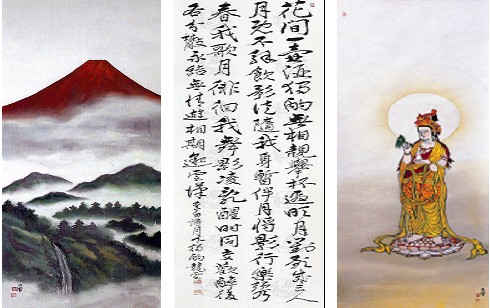 花間一壺酒獨酌無相親舉杯邀明月對影成三人
月既不解飲影徒隨我身暫伴月將影行樂須及
春我歌月徘徊我舞影凌亂醒時同交歡醉後
各分散永結無情遊相期邈雲漢 李白詩月下獨酌